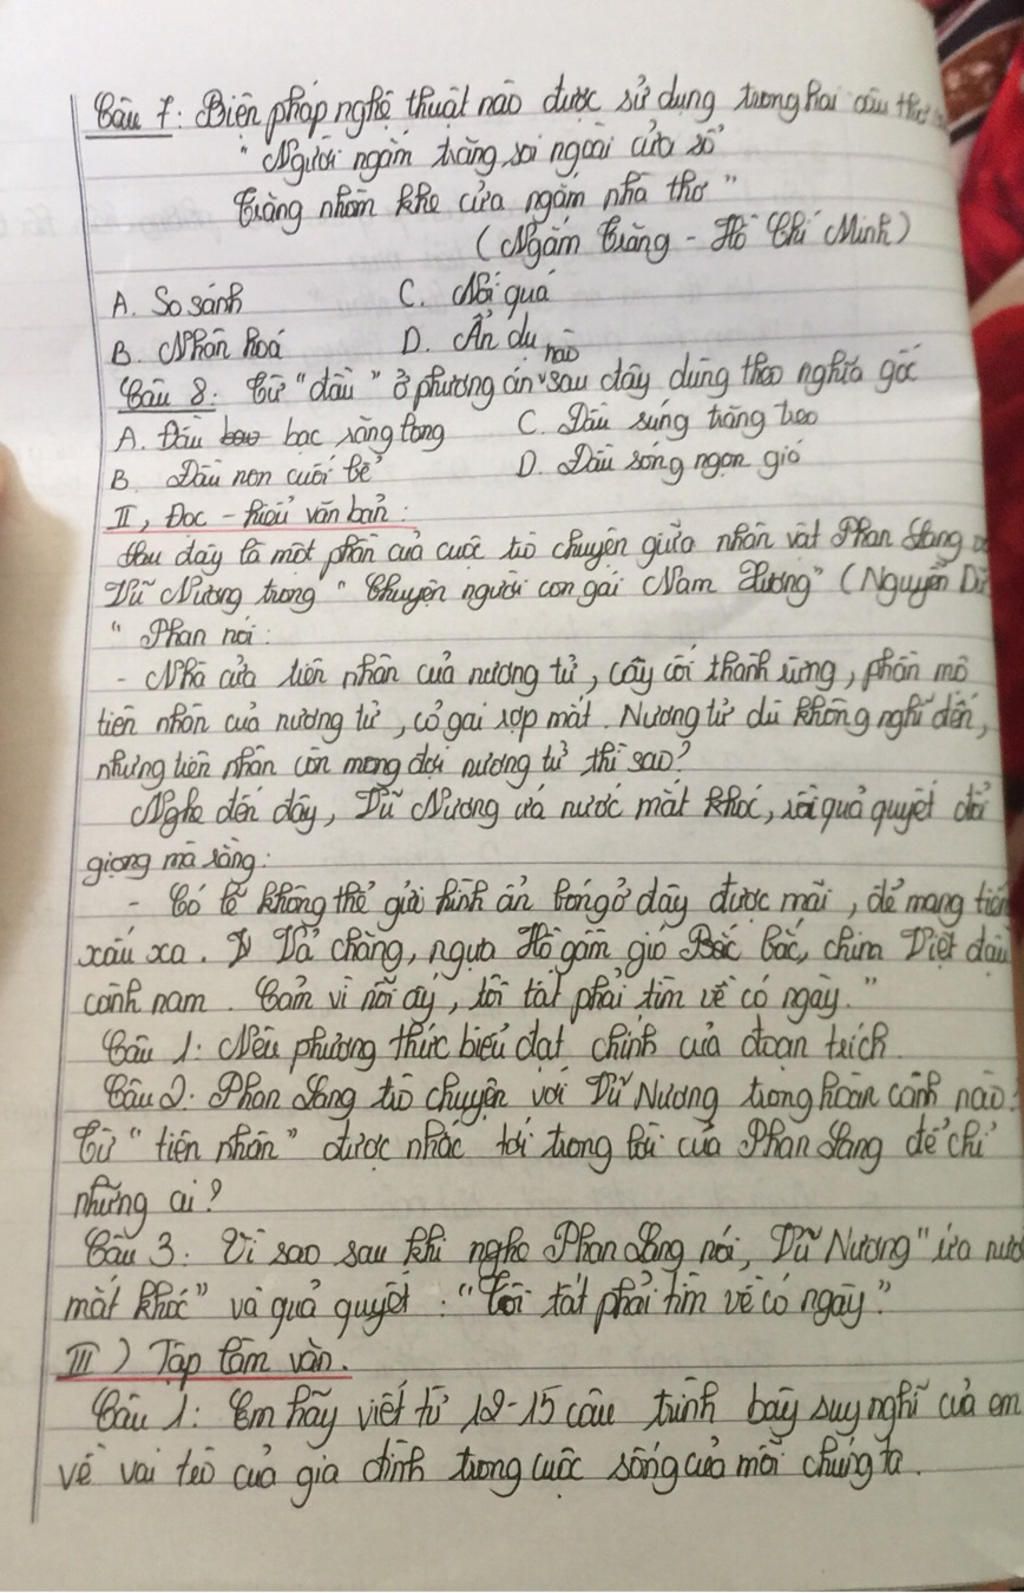 Câu 7: Biện pháp nghệ thuật nào được sử dụng trong hai câu thơ
" Người ngắm trăng soi ngoài cửa sổ
Trăng nhòm khe cửa ngắm nhà thơ "
( Ngắm Trăng - Hồ Chí Minh )
A. So sánh C. Nói quá
B. Nhân hoá D. Ẩn dụ
Câu 8: Từ " đầu " ở phương án nào sau đây dùng theo nghĩa gốc
A. Đầu bạc răng long C. Đầu súng trăng treo
B. Đầu non cuối bể D. Đầu sóng ngọn gió
II, Đọc - hiểu văn bản :
Sau đây là một phần của cuộc trò chuyện giữa nhân vật Phan Lang
Vũ Nương trong " Chuyện người con gái Nam Xương " ( Nguyễn Dữ
" Phan nói :
- Nhà cửa tiên nhân của nương tử, cây cối thành rừng, phần mộ
tiên nhân của nương tử, cỏ gai rợp mắt. Nương tử dù không nghĩ đến,
nhưng tiên nhân còn mong đợi nương tử thì sao?
Nghe đến đây, Vũ Nương ứa nước mắt khóc, rồi quả quyết đổi
giọng mà rằng :
- Có lẽ không thể gửi hình ẩn bóng ở đây được mãi, để mang tiến
xấu xa. Vả chăng, ngựa Hồ gầm gió Bắc, chim Việt đậu
cành nam. Cảm vì nỗi ấy, tôi tất phải tìm về có ngày. "
Câu 1: Nêu phương thức biểu đạt chính của đoạn trích.
Câu 2: Phan Lang trò chuyện với Vũ Nương trong hoàn cảnh nào?
Từ " tiên nhân " được nhắc tới trong lời của Phan Lang để chỉ
những ai?
Câu 3: Vì sao sau khi nghe Phan Lang nói, Vũ Nương " ứa nước
mắt khóc " và quả quyết : " Tôi tất phải tìm về có ngày "
III ) Tập làm văn.
Câu 1: Em hãy viết từ 12-15 câu trình bày suy nghĩ của em
về vai trò của gia đình trong cuộc sống của mỗi chúng ta.